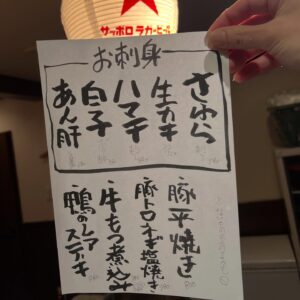 サッポロラガービール
お刺身
さわら
生カキ
ハマチ
白子
あん肝
豚平焼き
豚トロネギ塩焼き
牛もつ煮込み
鴨のレアステーキ